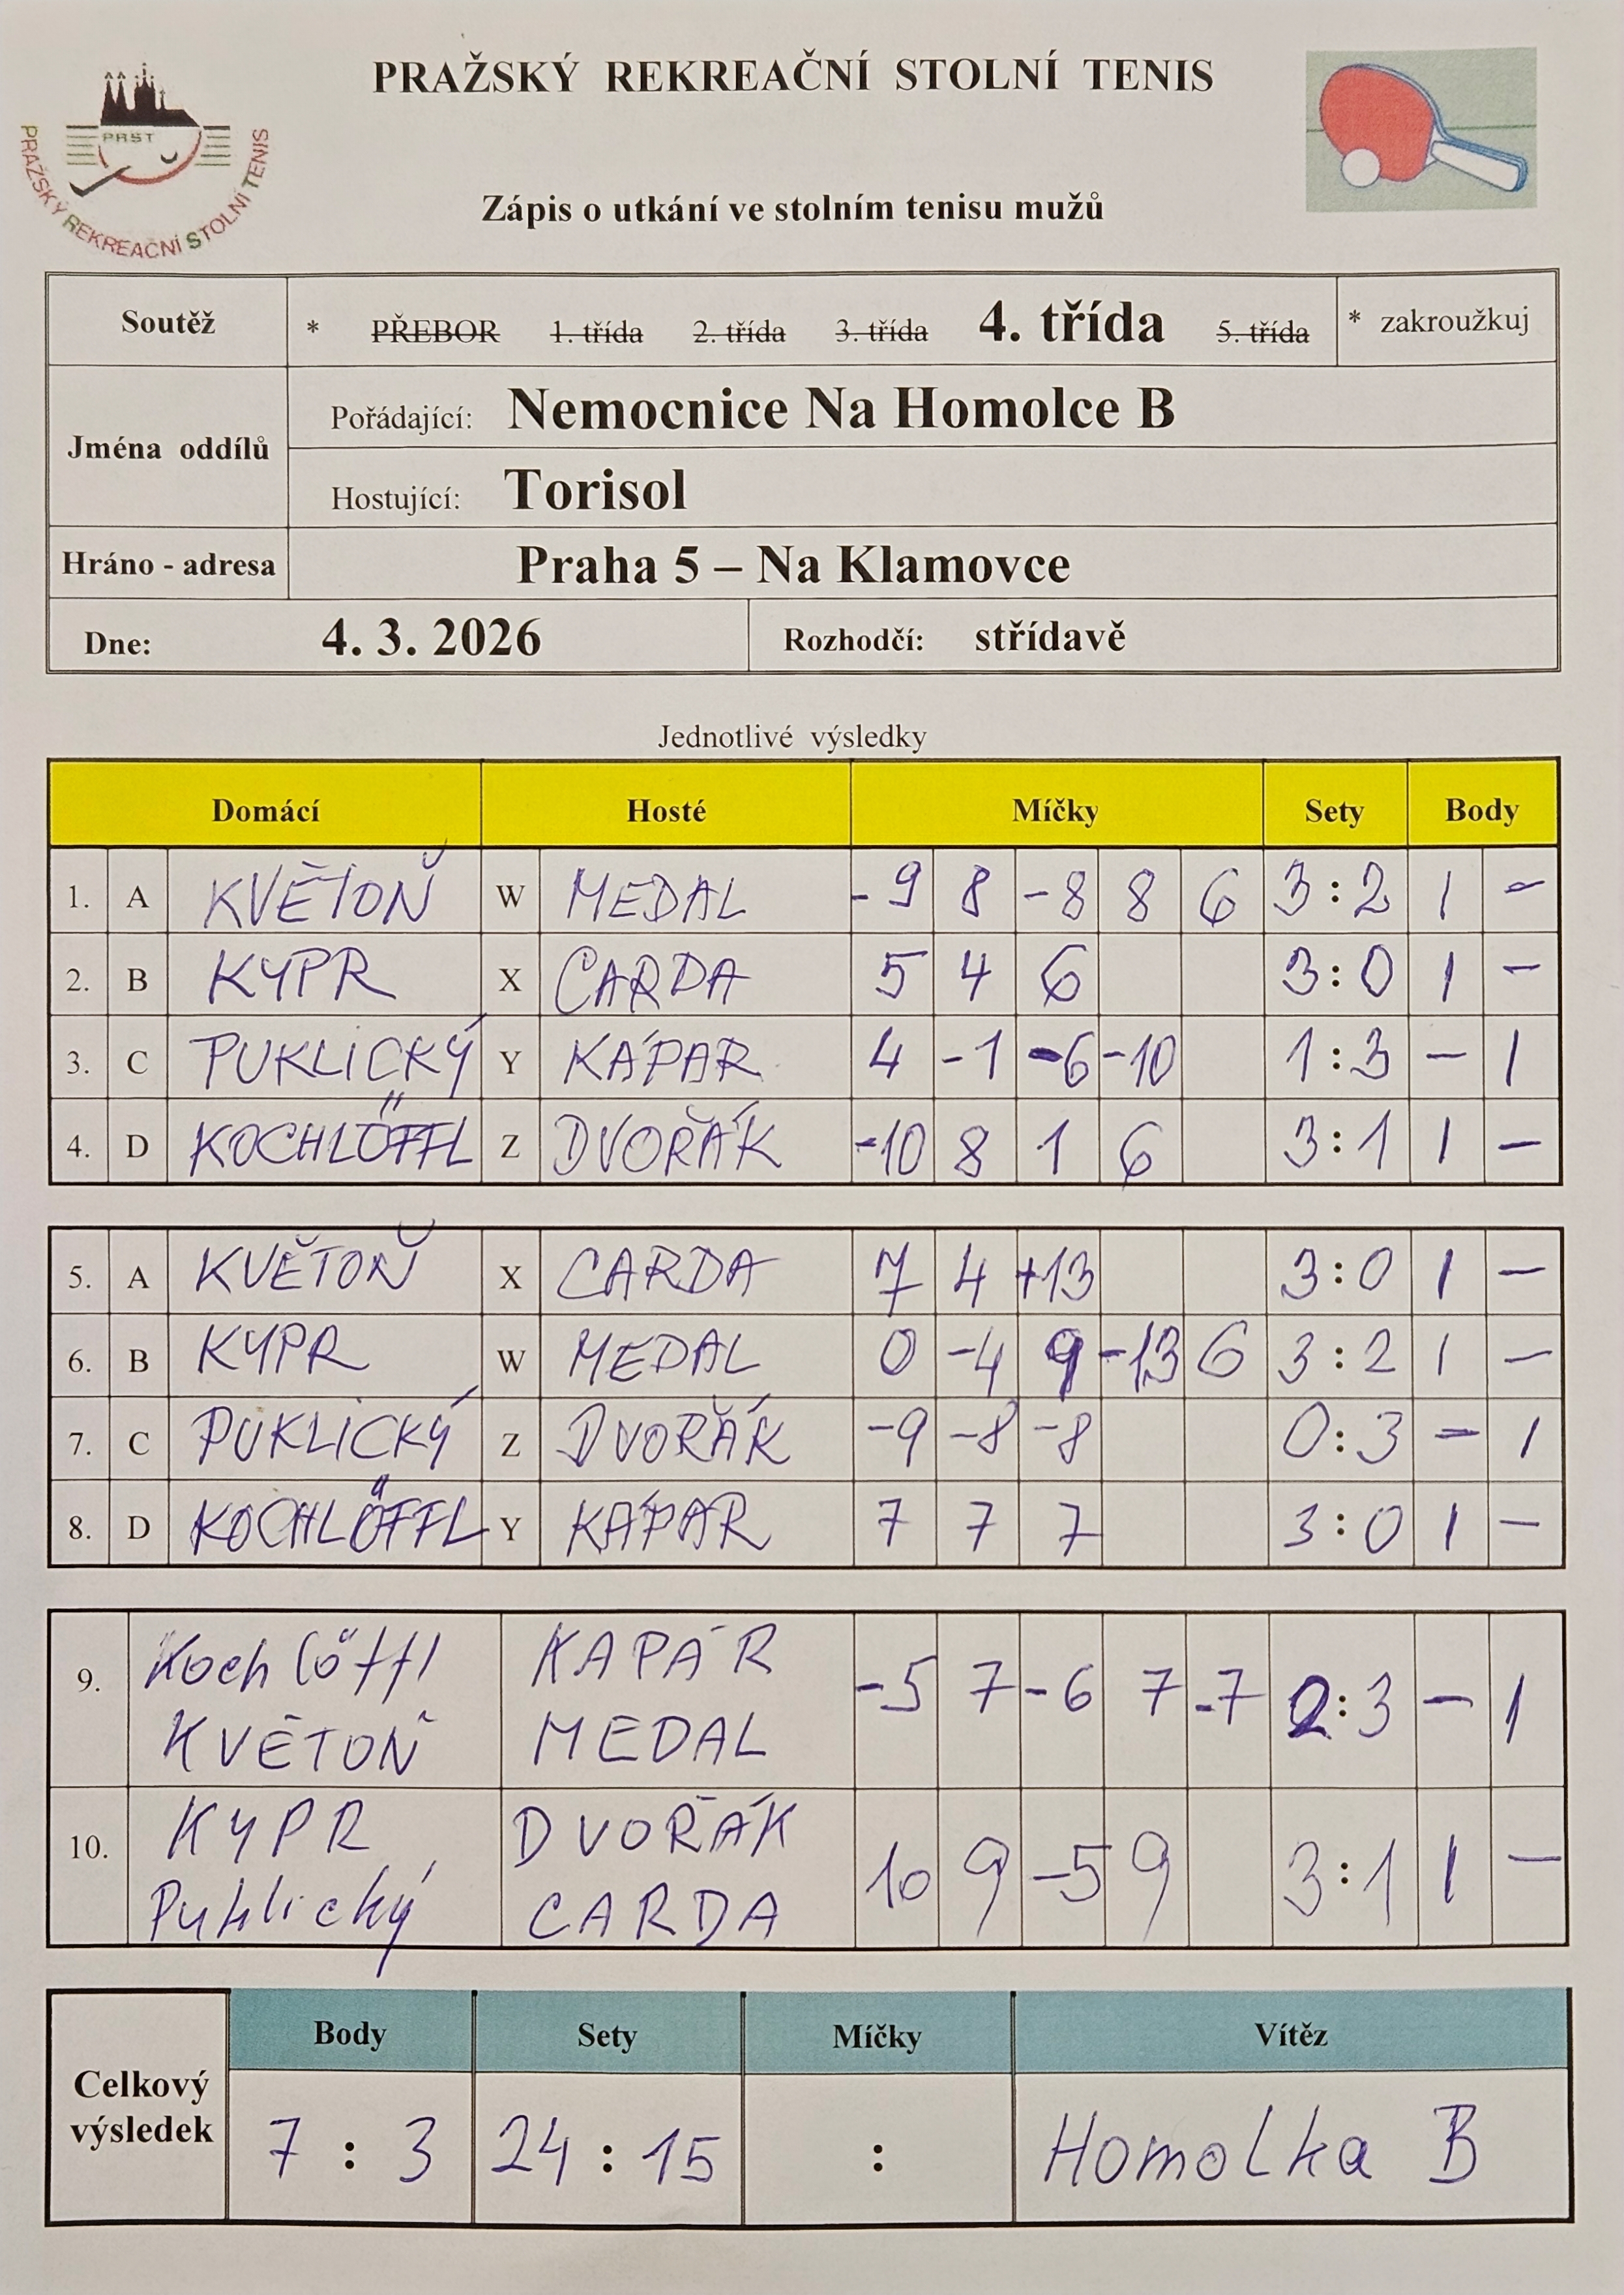 PRAŽSKÝ REKREAČNÍ STOLNÍ TENIS
PRST
PRAŽSKÝ REKREAČNÍ STOLNÍ TENIS
Zápis o utkání ve stolním tenisu mužů
Soutěž * PŘEBOR 1. třída 2. třída 3. třída 4. třída 5. třída * zakroužkuj
Jména oddílů
Pořádající: Nemocnice Na Homolce B
Hostující: Torisol
Hráno - adresa Praha 5 – Na Klamovce
Dne: 4. 3. 2026 Rozhodčí: střídavě
Jednotlivé výsledky
Domácí Hosté Míčky Sety Body
1. A KVĚTOŇ W MEDAL -9 8 -8 8 6 3:2 1 -
2. B KYPR X CARDA 5 4 6 3:0 1 -
3. C PUKLICKÝ Y KÁPAR 4 -1 -6 -10 1:3 - 1
4. D KOCHLÖFFL Z DVOŘÁK -10 8 1 6 3:1 1 -
5. A KVĚTOŇ X CARDA 7 4 +13 3:0 1 -
6. B KYPR W MEDAL 0 -4 9 -13 6 3:2 1 -
7. C PUKLICKÝ Z DVOŘÁK -9 -8 -8 0:3 - 1
8. D KOCHLÖFFL Y KÁPAR 7 7 7 3:0 1 -
9. Kochlöffl KAPÁR -5 7 -6 7 -7 2:3 - 1
KVĚTOŇ MEDAL
10. KYPR DVOŘÁK 10 9 -5 9 3:1 1 -
Puklický CARDA
Celkový výsledek
Body Sety Míčky Vítěz
7 : 3 24 : 15 : Homolka B